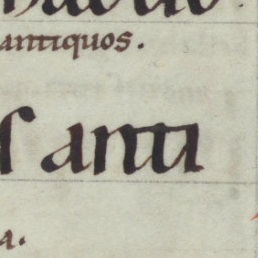 antiquos.
ſ anti
a.